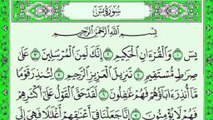 سُورَةُ يسٓ
بِسْمِ اللَّهِ الرَّحْمَٰنِ الرَّحِيمِ
يسٓ ۝١ وَالْقُرْءَانِ الْحَكِيمِ ۝٢ إِنَّكَ لَمِنَ الْمُرْسَلِينَ ۝٣ عَلَىٰ
صِرَٰطٍ مُّسْتَقِيمٍ ۝٤ تَنزِيلَ الْعَزِيزِ الرَّحِيمِ ۝٥ لِتُنذِرَ قَوْمًا
مَّآ أُنذِرَ ءَابَآؤُهُمْ فَهُمْ غَٰفِلُونَ ۝٦ لَقَدْ حَقَّ الْقَوْلُ عَلَىٰٓ أَكْثَرِهِمْ
فَهُمْ لَا يُؤْمِنُونَ ۝٧ إِنَّا جَعَلْنَا فِىٓ أَعْنَٰقِهِمْ أَغْلَٰلًا فَهِىَ إِلَى